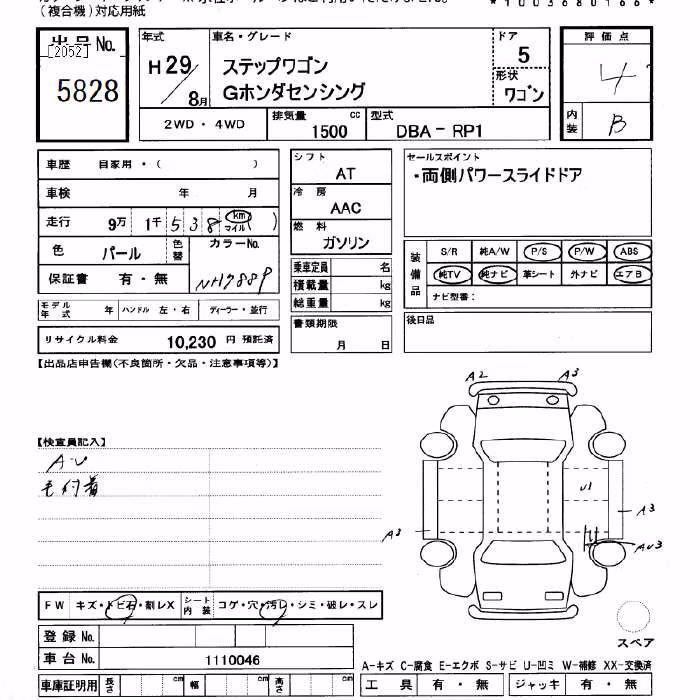 (複合機)対応用紙
*1003680166*
出品No.
[2052]
5828
年式
H29/8月
車名・グレード
ステップワゴン
Gホンダセンシング
ドア
5
形状
ワゴン
2WD・4WD
排気量 1500 cc
型式 DBA-RP1
評価点
4
内装 B
車歴 自家用・( )
車検 年 月
走行 9万 1千 538 km マイル ( )
色 パール 色替 カラーNo. NH788P
保証書 有・無
モデル年式 年 ハンドル 左・右 ディーラー・並行
リサイクル料金 10,230 円 預託済
シフト
AT
冷房
AAC
燃料
ガソリン
乗車定員 名
積載量 kg
総重量 kg
書類期限
月 日
セールスポイント
・両側パワースライドドア
装備品
S/R 純A/W P/S P/W ABS
純TV 純ナビ 革シート 外ナビ エアB
ナビ型番:
後日品
【出品店申告欄(不良箇所・欠品・注意事項等)】
【検査員記入】
A・U
毛付着
A2 A3
U1
A3
A3
AU3
スペア
FW キズ・トビ石・割レX シート内装 コゲ・穴・汚レ・シミ・破レ・スレ
登録No.
車台No. 1110046
車庫証明用 長さ cm 幅 cm 高さ cm
A-キズ C-腐食 E-エクボ S-サビ U-凹ミ W-補修 XX-交換済
工具 有・無 ジャッキ 有・無